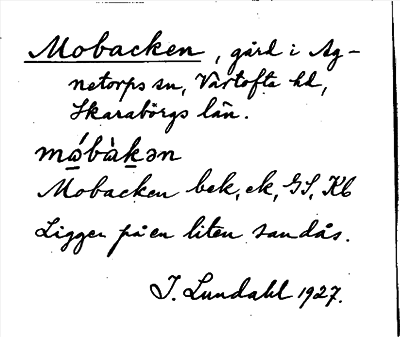 Mobacken, gård i Ag-
netorps sn, Vartofta hd,
Skaraborgs län.
mǻbàkən
Mobacken bek, ek, GS, Kb
Ligger på en liten sandås.
I. Lundahl 1927.